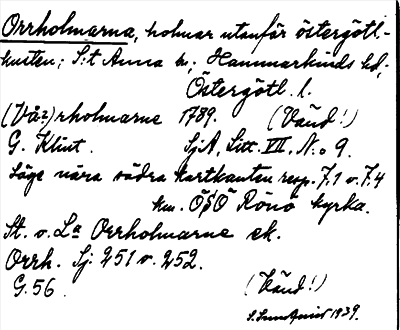 Orrholmarna, holmar utanför östergötl.-
kusten; S:t Anna s:n; Hammarkinds hd;
Östergötl. l.
(Vår?)rholmarne 1789. (Vänd!)
G. Klint. SjA, Litt. VII, N:o 9.
Läge nära södra kartkanten resp. 7.1 o. 7.4
km. ÖSÖ Rönö kyrka.
St. o. La Orrholmarne ek.
Orrh. Sj 251 o. 252.
G. 56. (Vänd!)
1939.